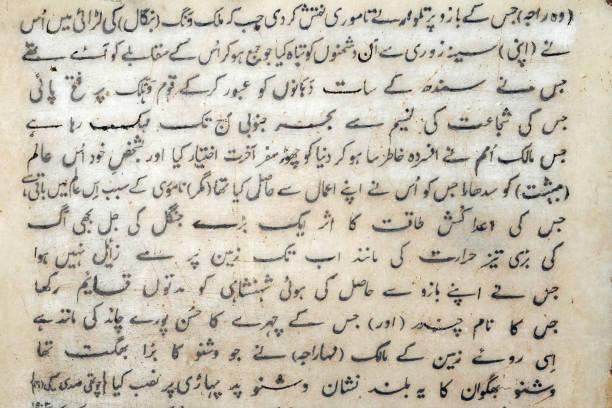 (وہ راجہ) جس کے بازو پر تلوار نے ناموری نقش کر دی جب کہ ملک ونگ (بنگال) کی لڑائی میں اُس
نے (اپنی) سینہ زوری سے اُن دشمنوں کو تباہ کیا جو جمع ہو کر اُس کے مقابلے کو آئے تھے
جس نے سندھ کے سات دہانوں کو عبور کر کے قوم وہلک پر فتح پائی
جس کی شجاعت کی نسیم سے بحر جنوبی آج تک مہک رہا ہے
جس مالک اُمم نے افسردہ خاطر سا ہو کر دنیا کو چھوڑ سفر آخرت اختیار کیا اور بشخص خود اُس عالم
(بہشت) کو سدھارا جس کو اُس نے اپنے اعمال سے حاصل کیا تھا (مگر) ناموری کے سبب اِس عالم میں باقی ہے
جس کی عدا کُش طاقت کا اثر ایک بڑے جنگل کی جل بھی آگ
کی بڑی تیز حرارت کی مانند اب تک زمین پر سے زایٔل نہیں ہوا
جس نے اپنے بازو سے حاصل کی ہوئی شہنشاہی کو مدتوں قایٔم رکھا
جس کا نام چندر (اور) جس کے چہرے کا حُسن پورے چاند کی مانند ہے
اِسی روئے زمین کے مالک (مہاراجہ) نے جو وشنو کا بڑا بھگت تھا
وشنو بھگوان کا یہ بلند نشان وشنو پد پہاڑی پر نصب کیا (چوتھی صدی